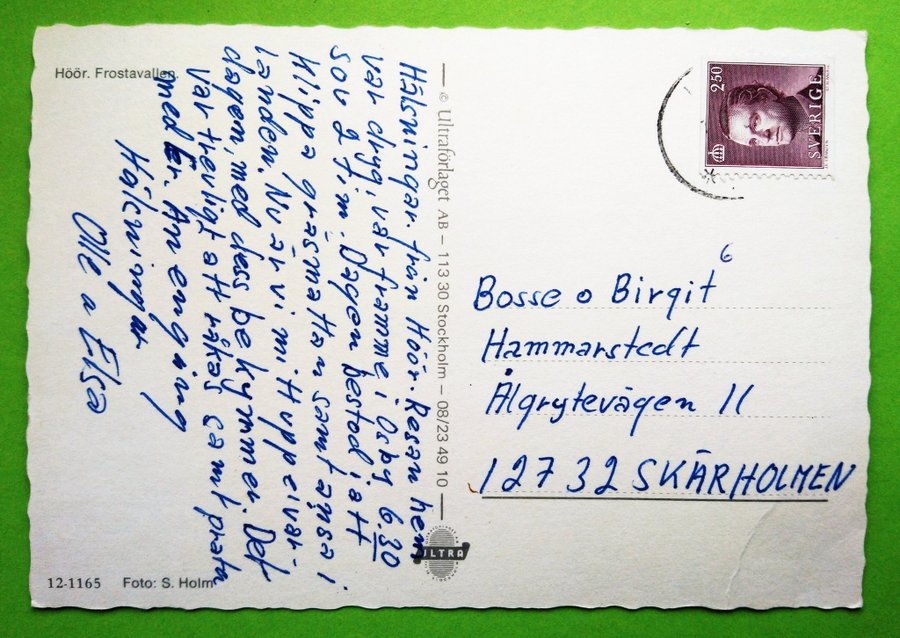 Höör. Frostavallen.
Hälsningar från Höör. Resan hem
var dryg, var framme i Osby 6.30
sov 2 tim. Dagen bestod i att
klippa gräsmattan samt ansa i
landen. Nu är vi mitt uppe i var-
dagen, med dess bekymmer. Det
var trevligt att råkas samt prata
med Er. Än en gång
Hälsningar
Olle o Elsa
© Ultraförlaget AB – 113 30 Stockholm – 08/23 49 10
ULTRA
2.50
SVERIGE
6
Bosse o Birgit
Hammarstedt
Ålgrytevägen 11
127 32 SKÄRHOLMEN
12-1165 Foto: S. Holm